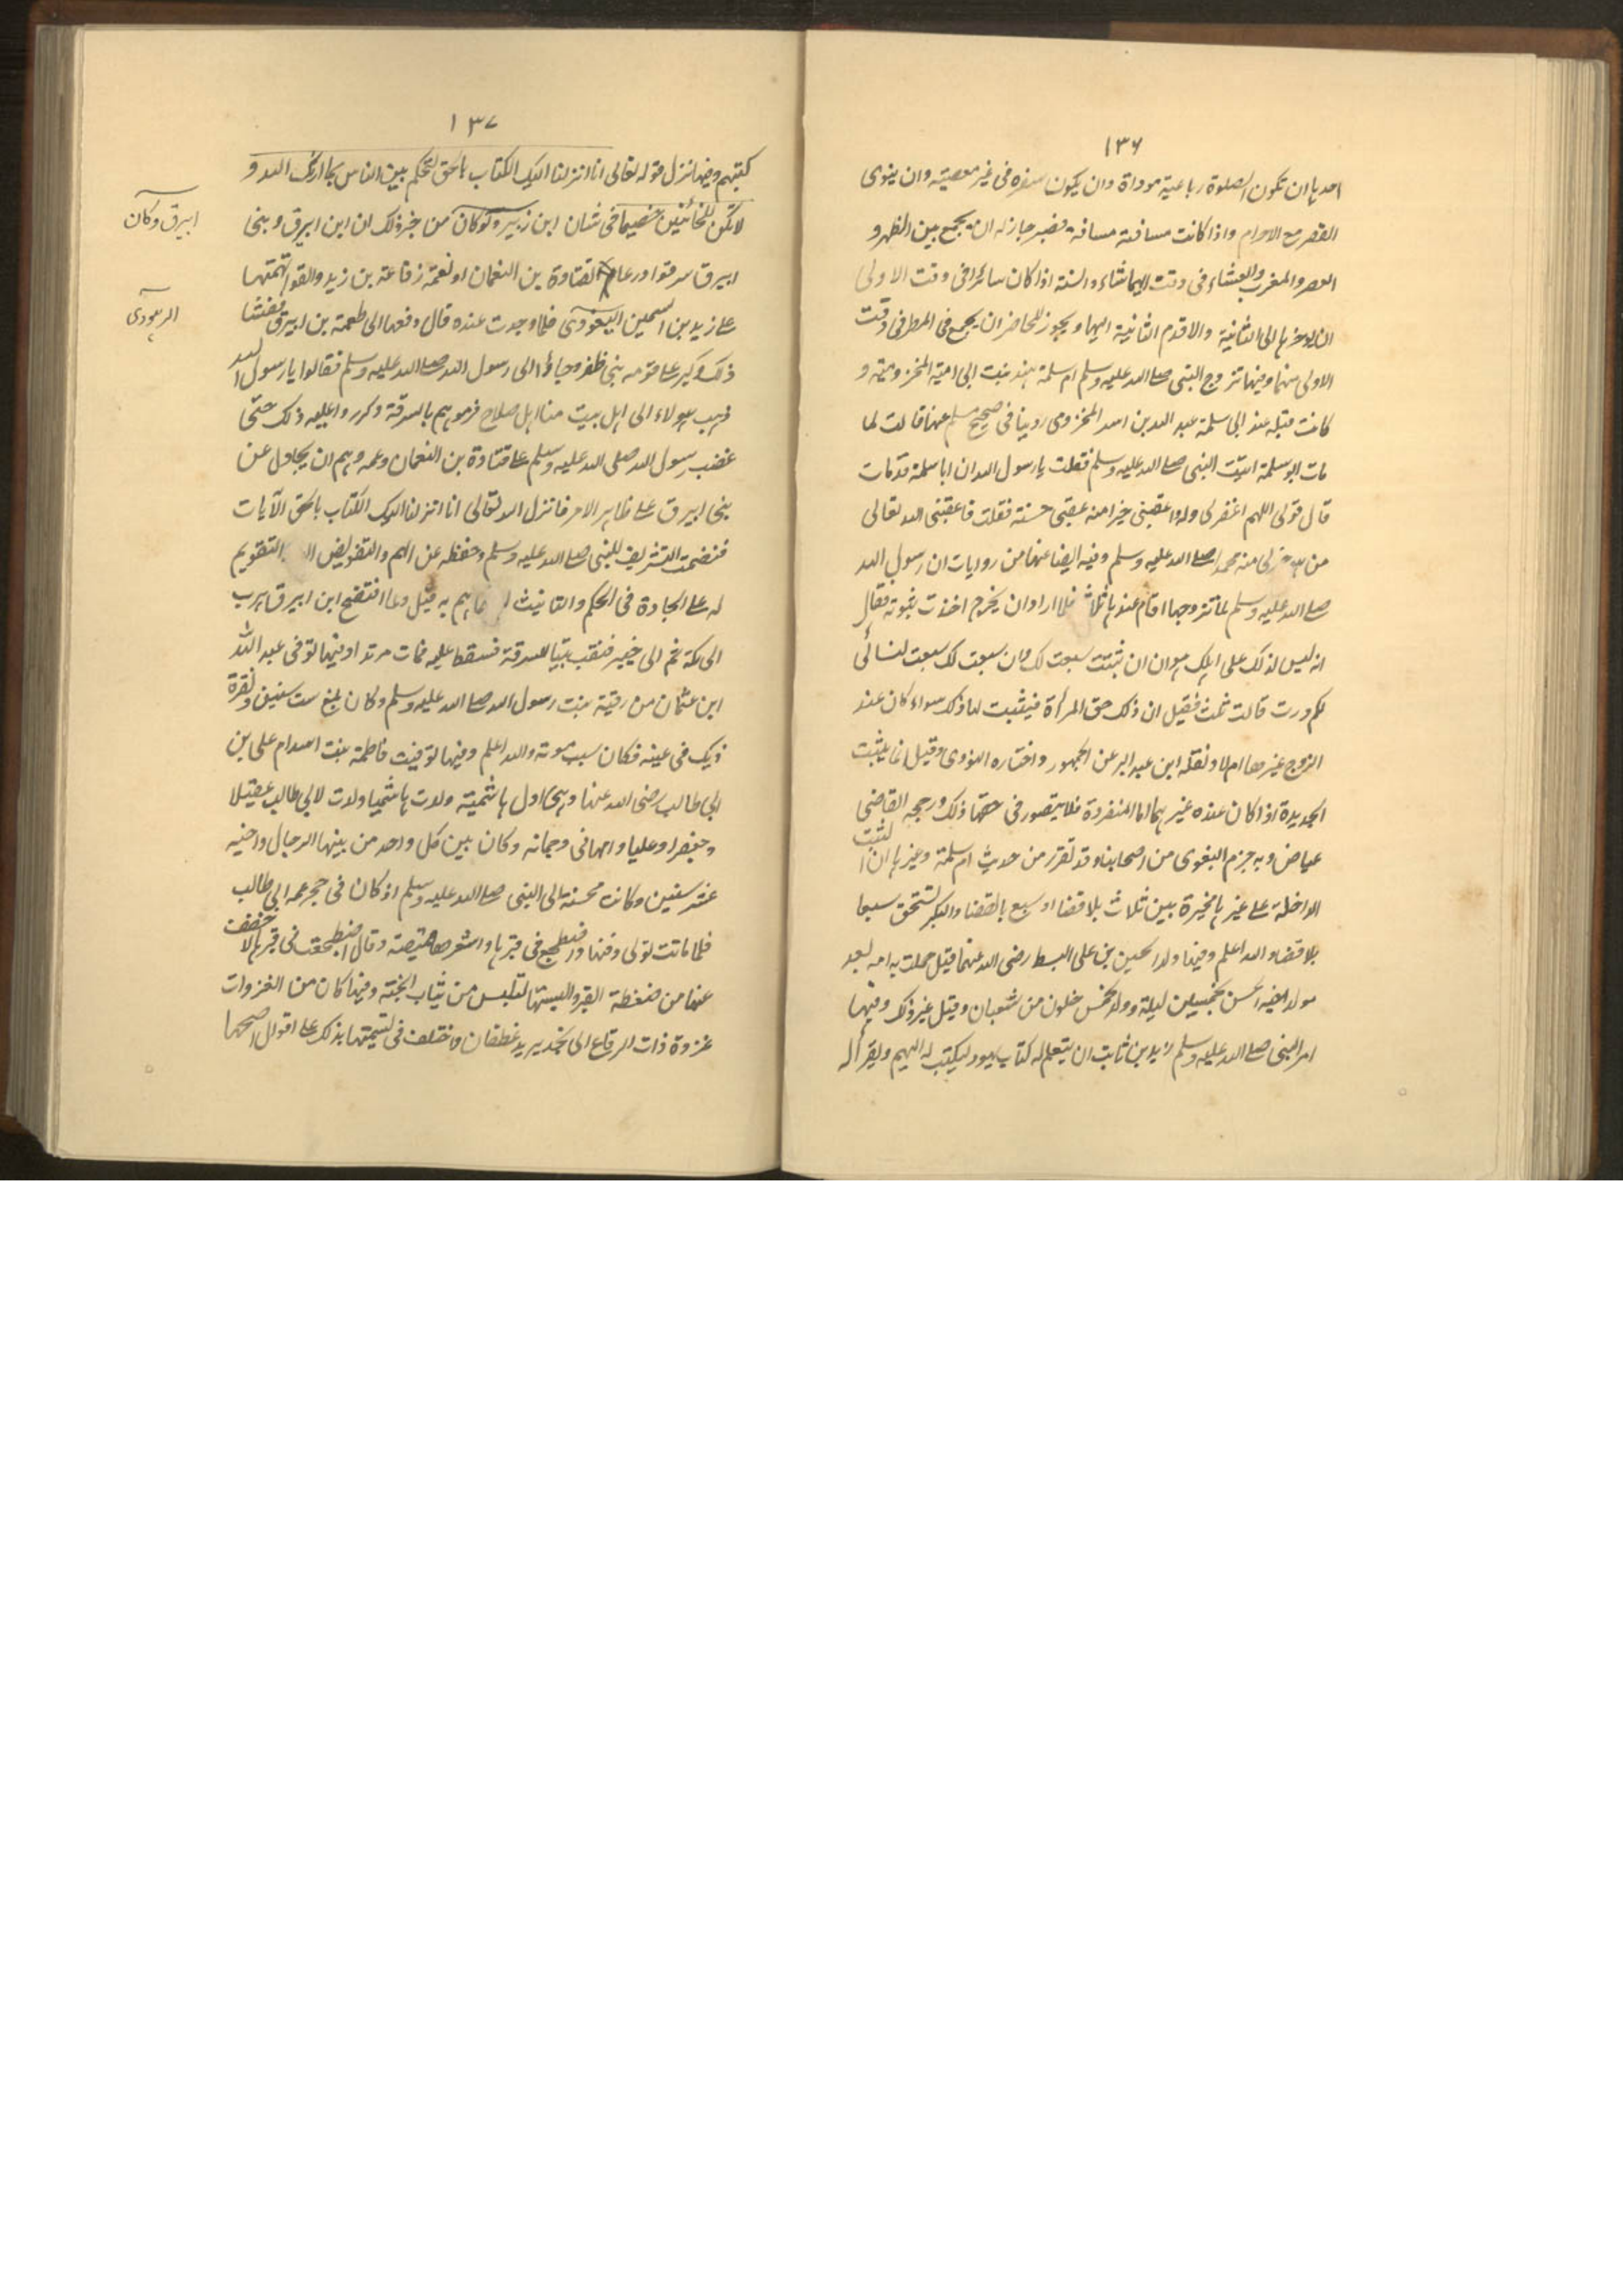 ١٣٦
احدہا ان تكون الصلوة رباعية موداة وان يكون سفره فى غير معصيته وان ينوى
القصر مع الاحرام واذا كانت مسافته مسافة قصر جاز له ان يجمع بين الظهر و
العصر والمغرب والعشاء فى وقت ايهما شاء والسنة اذا كان سائرا فى وقت الاولى
ان يوخرہا الى الثانية والا قدم الثانية اليها ويجوز للحاضر ان يجمع فى المطر فى وقت
الاولى منهما وفيها تزوج النبى صلى الله عليه وسلم ام سلمة ہند بنت ابى امية المخزومية و
كانت قبله عند ابى سلمة عبد الله بن اسد المخزومى روينا فى صحيح مسلم عنها قالت لما
مات ابو سلمة اتيت النبى صلى الله عليه وسلم فقلت يا رسول الله ان ابا سلمة قد مات
قال قولى اللهم اغفر لى وله واعقبنى خيرا منه عقبى حسنة فقلت فاعقبنى الله تعالى
من ہو خير لى منه محمدا صلى الله عليه وسلم وفيه ايضا عنها من روايات ان رسول الله
صلى الله عليه وسلم لما تزوجها اقام عندہا ثلاثا فلما اراد ان يخرج اخذت بثوبه فقال
انه ليس لذلك على اہلك ہوان ان شئت سبعت لك وان سبعت لك سبعت لنسائى
ثم درت قالت ثلث فقيل ان ذلك حق المرأة فيثبت لها ذلك سواء كان عند
الزوج غيرها ام لا ونقله ابن عبد البر عن الجمهور واختاره النووى وقيل انما يثبت
الجديدة اذا كان عنده غيرہا اما المنفردة فلا يتصور فى حقها ذلك ورجحه القاضى
عياض وبه جزم البغوى من اصحابنا وقد تقرر من حديث ام سلمة وغيرہا ان الثيب
الداخلة على غيرہا مخيرة بين ثلاث بلا قضا او سبع بالقضا والبكر تستحق سبعا
بلا قضاء والله اعلم وفيها ولد الحسين بن على السبط رضى الله عنهما قيل حملت به امه بعد
مولد اخيه الحسن بخمسين ليلة وولد لخمس خلون من شعبان وقيل غير ذلك وفيها
امر النبى صلى الله عليه وسلم زيد بن ثابت ان يتعلم له كتاب يہود ليكتب له اليہم ويقرأ له
١٣٧
كتبہم وفيها نزل قوله تعالى انا انزلنا اليك الكتاب بالحق لتحكم بين الناس بما اراك الله و
لا تكن للخائنين خصيما فى شان ابن زبير وكوكان من خبر ذلك ان ابن ابيرق وبنى
ابيرق وكان
ابيرق سرقوا درعا لقتادة بن النعمان او لعمه رفاعة بن زيد والقوا تهمتها
على زيد بن السمين اليهودى فلما وجدت عنده قال دفعها الى طعمة بن ابيرق ففشا
اليہودى
ذلك وكبر على قومه بنى ظفر وجاؤا الى رسول الله صلى الله عليه وسلم فقالوا يا رسول الله
ذہب ہولاء الى اہل بيت منا اہل صلاح فرموہم بالسرقة وكرروا عليه ذلك حتى
غضب رسول الله صلى الله عليه وسلم على قتادة بن النعمان وعمه وہم ان يجادل عن
بنى ابيرق على ظاہر الامر فانزل الله تعالى انا انزلنا اليك الكتاب بالحق الآيات
فتضمنت التشريف للنبى صلى الله عليه وسلم وحفظه عن الهم والتفويض التقويم
له على الجادة فى الحكم والتانيث ہم به قيل ولما افتضح ابن ابيرق ہرب
الى مكة ثم الى خيبر فنقب بيتا للسرقة فسقط عليه فمات مرتدا وفيها توفى عبد الله
ابن عثمان من رقية بنت رسول الله صلى الله عليه وسلم وكان بلغ ست سنين ونقرة
ديك فى عينه فكان سبب موته والله اعلم وفيها توفيت فاطمة بنت اسد ام على بن
ابى طالب رضى الله عنها وہى اول ہاشمية ولدت ہاشميا ولدت لابى طالب عقيلا
وجعفرا وعليا وام ہانى وجمانه وكان بين كل واحد من بينها الرجال واخيه
عشر سنين وكانت محسنة الى النبى صلى الله عليه وسلم اذ كان فى حجر عمه ابى طالب
فلما ماتت تولى دفنها واضطجع فى قبرہا واشعرها قميصه وقال اضطجعت فى قبرہا لاخفف
عنها من ضغطة القبر والبستها لتلبس من ثياب الجنة وفيها كان من الغزوات
غزوة ذات الرقاع الى نجد يريد غطفان واختلف فى تسميتها بذلك على اقوال اصحها